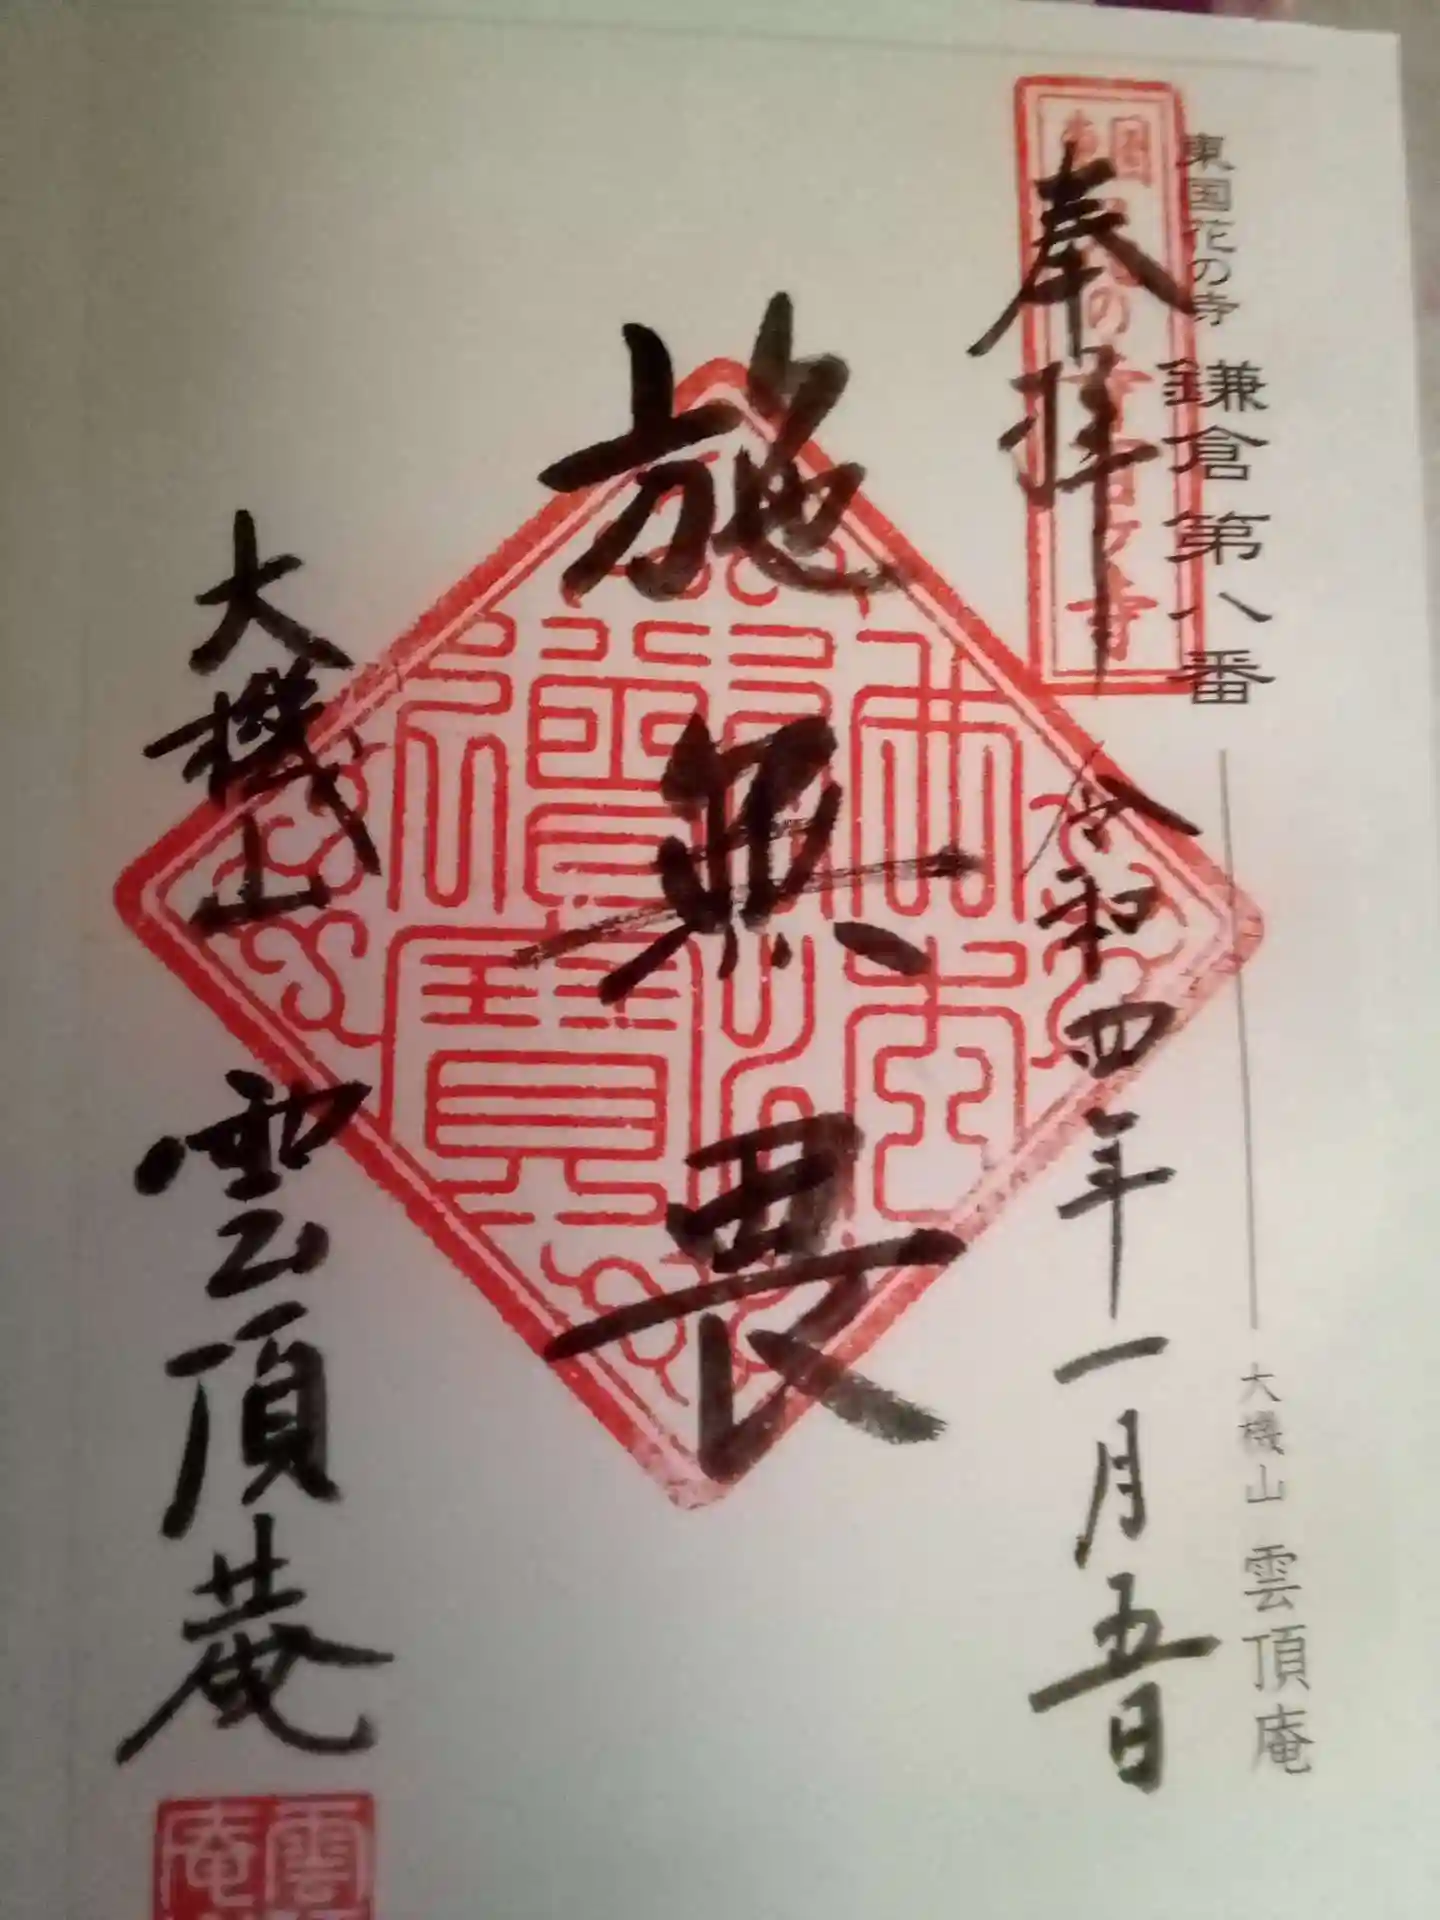 東国花の寺 鎌倉第八番
大機山 雲頂庵
奉拝
令和四年一月五日
施無畏
佛法僧寶
大機山 雲頂庵